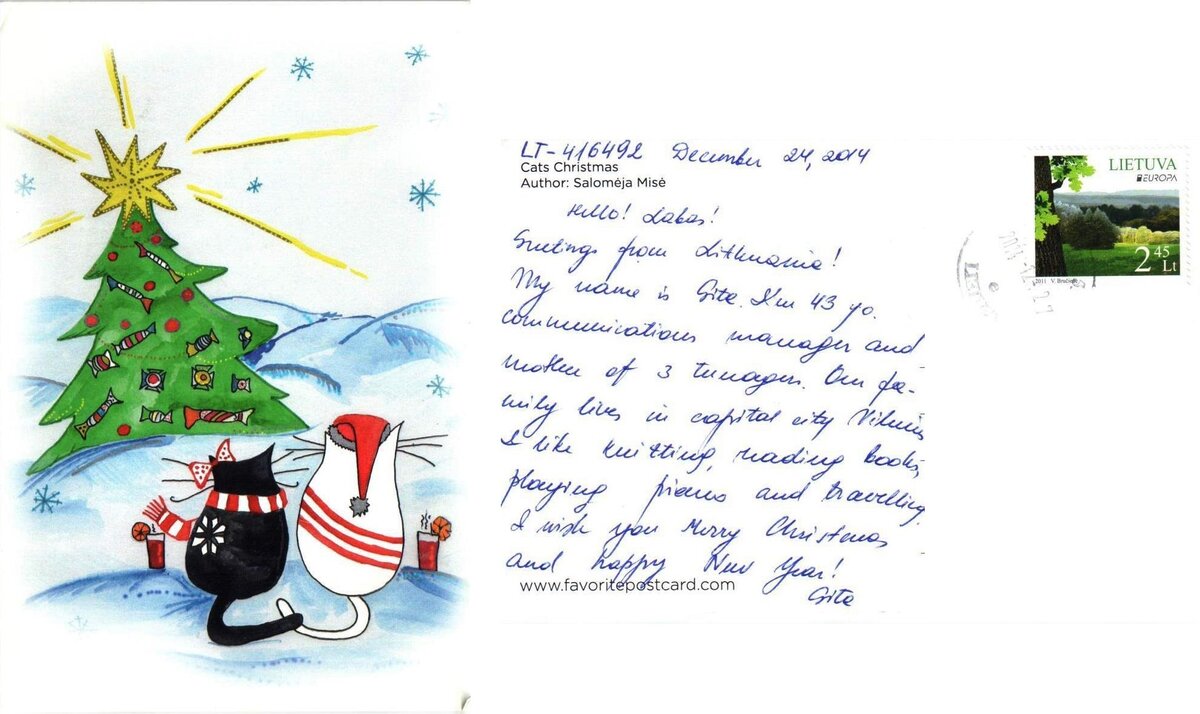 LT-416492 December 24, 2014
Cats Christmas
Author: Salomėja Misė
Hello! Labas!
Greetings from Lithuania!
My name is Gita. I'm 43 yo.
communications manager and
mother of 3 teenagers. Our fa-
mily lives in capital city Vilnius
I like knitting, reading books,
playing piano and travelling.
I wish you Merry Christmas
and happy New Year!
Gita
www.favoritepostcard.com
LIETUVA
EUROPA
2 45 Lt
2011 V.